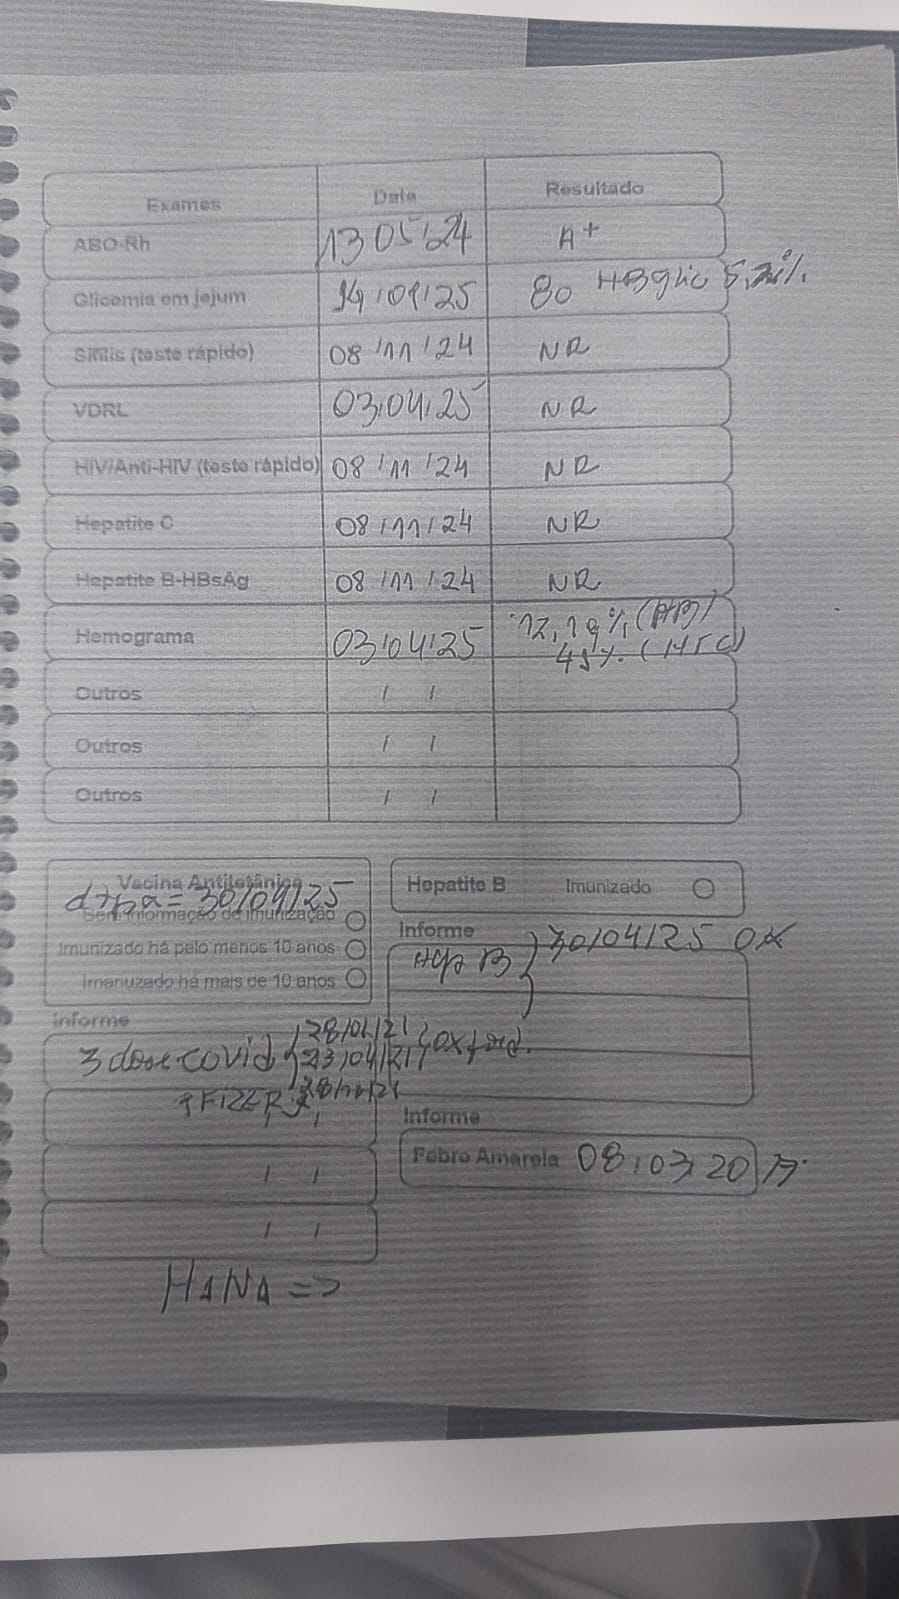 Exames Data Resultado
ABO-Rh 13 05 24 A+
Glicemia em jejum 14/01/25 80 HBglic
Sífilis (teste rápido) 08/11/24 NR
VDRL 03/04/25 NR
HIV/Anti-HIV (teste rápido) 08/11/24 NR
Hepatite C 08/11/24 NR
Hepatite B-HBsAg 08/11/24 NR
Hemograma 03/04/25
Outros / /
Outros / /
Outros / /
Vacina Antitetânica
dtpa = 30/04/25
Sem informação de imunização
Imunizado há pelo menos 10 anos
Imanuzado há mais de 10 anos
Hepatite B Imunizado
Informe
Hep B } 30/04/25 OK
Informe
3 dose covid
23/04/21 Oxford.
PFIZER
/ /
/ /
Informe
Febre Amarela 08/03/20
HANA =>